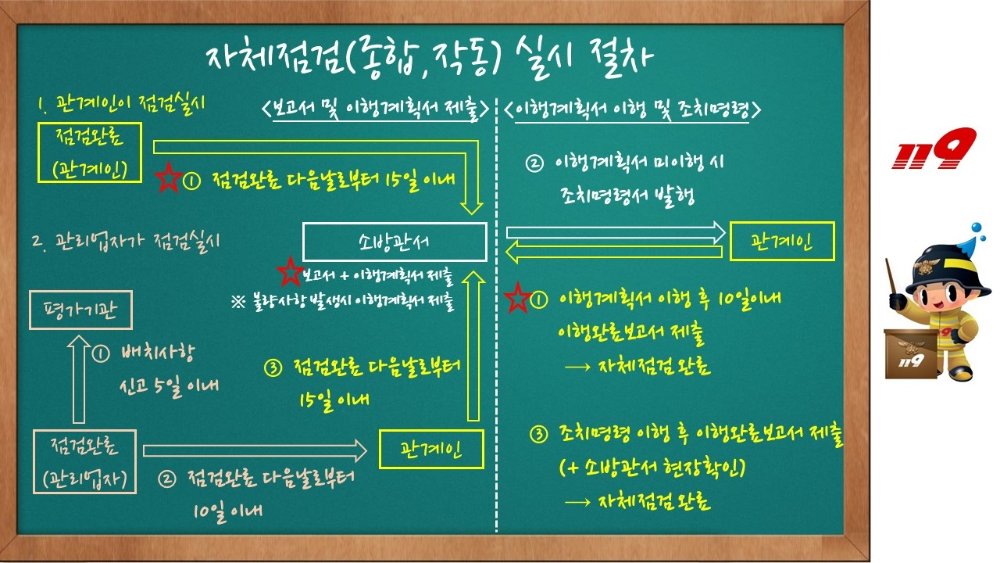 자체점검(종합,작동) 실시 절차
<보고서 및 이행계획서 제출>
1. 관계인이 점검실시
점검완료
(관계인)
① 점검완료 다음날로부터 15일 이내
소방관서
보고서 + 이행계획서 제출
※ 불량사항 발생시 이행계획서 제출
2. 관리업자가 점검실시
평가기관
① 배치사항
신고 5일 이내
③ 점검완료 다음날로부터
15일 이내
점검완료
(관리업자)
② 점검완료 다음날로부터
10일 이내
관계인
<이행계획서 이행 및 조치명령>
② 이행계획서 미이행 시
조치명령서 발행
관계인
① 이행계획서 이행 후 10일이내
이행완료보고서 제출
→ 자체점검 완료
③ 조치명령 이행 후 이행완료보고서 제출
(+ 소방관서 현장확인)
→ 자체점검 완료
119
119